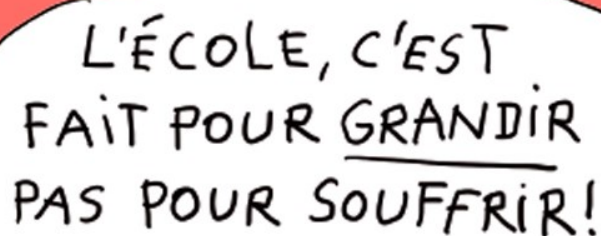 L'ÉCOLE, C'EST
FAIT POUR GRANDIR
PAS POUR SOUFFRIR!